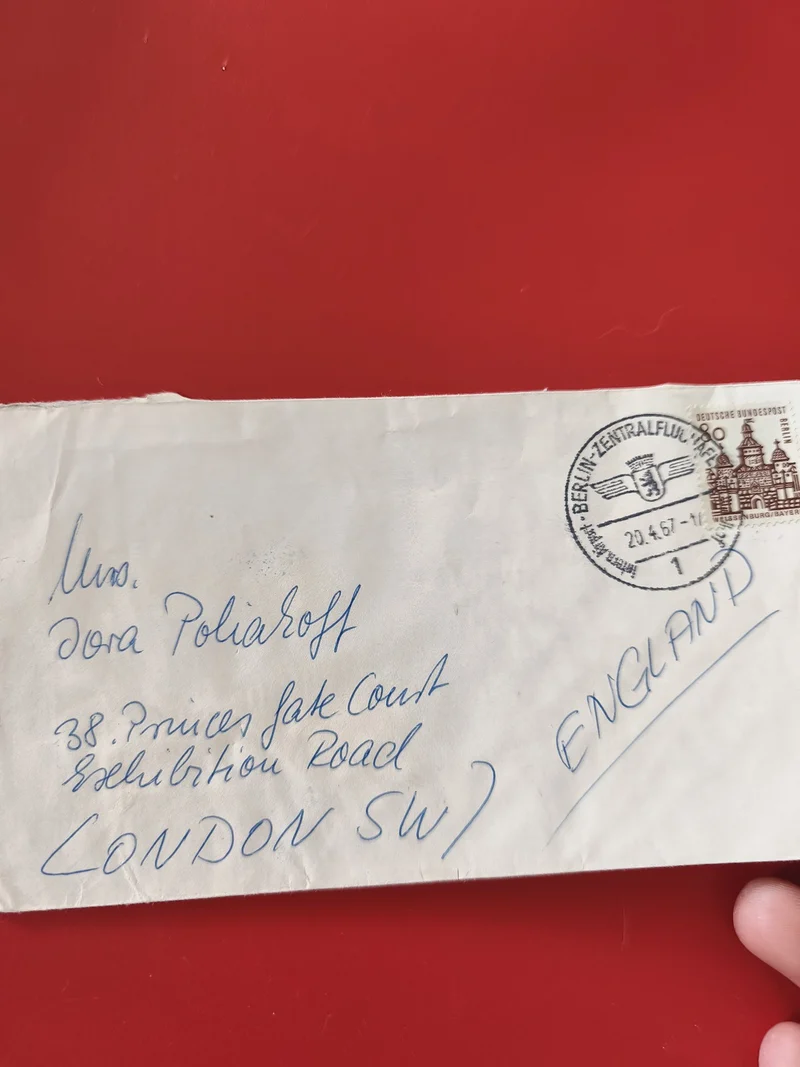 DEUTSCHE BUNDESPOST
BERLIN
80
WEISSENBURG/BAYERN
BERLIN-ZENTRALFLUGHAFEN
20.4.67
1
Mrs.
Dora Poliakoff
38. Princes Gate Court
Exhibition Road
LONDON SW7
ENGLAND